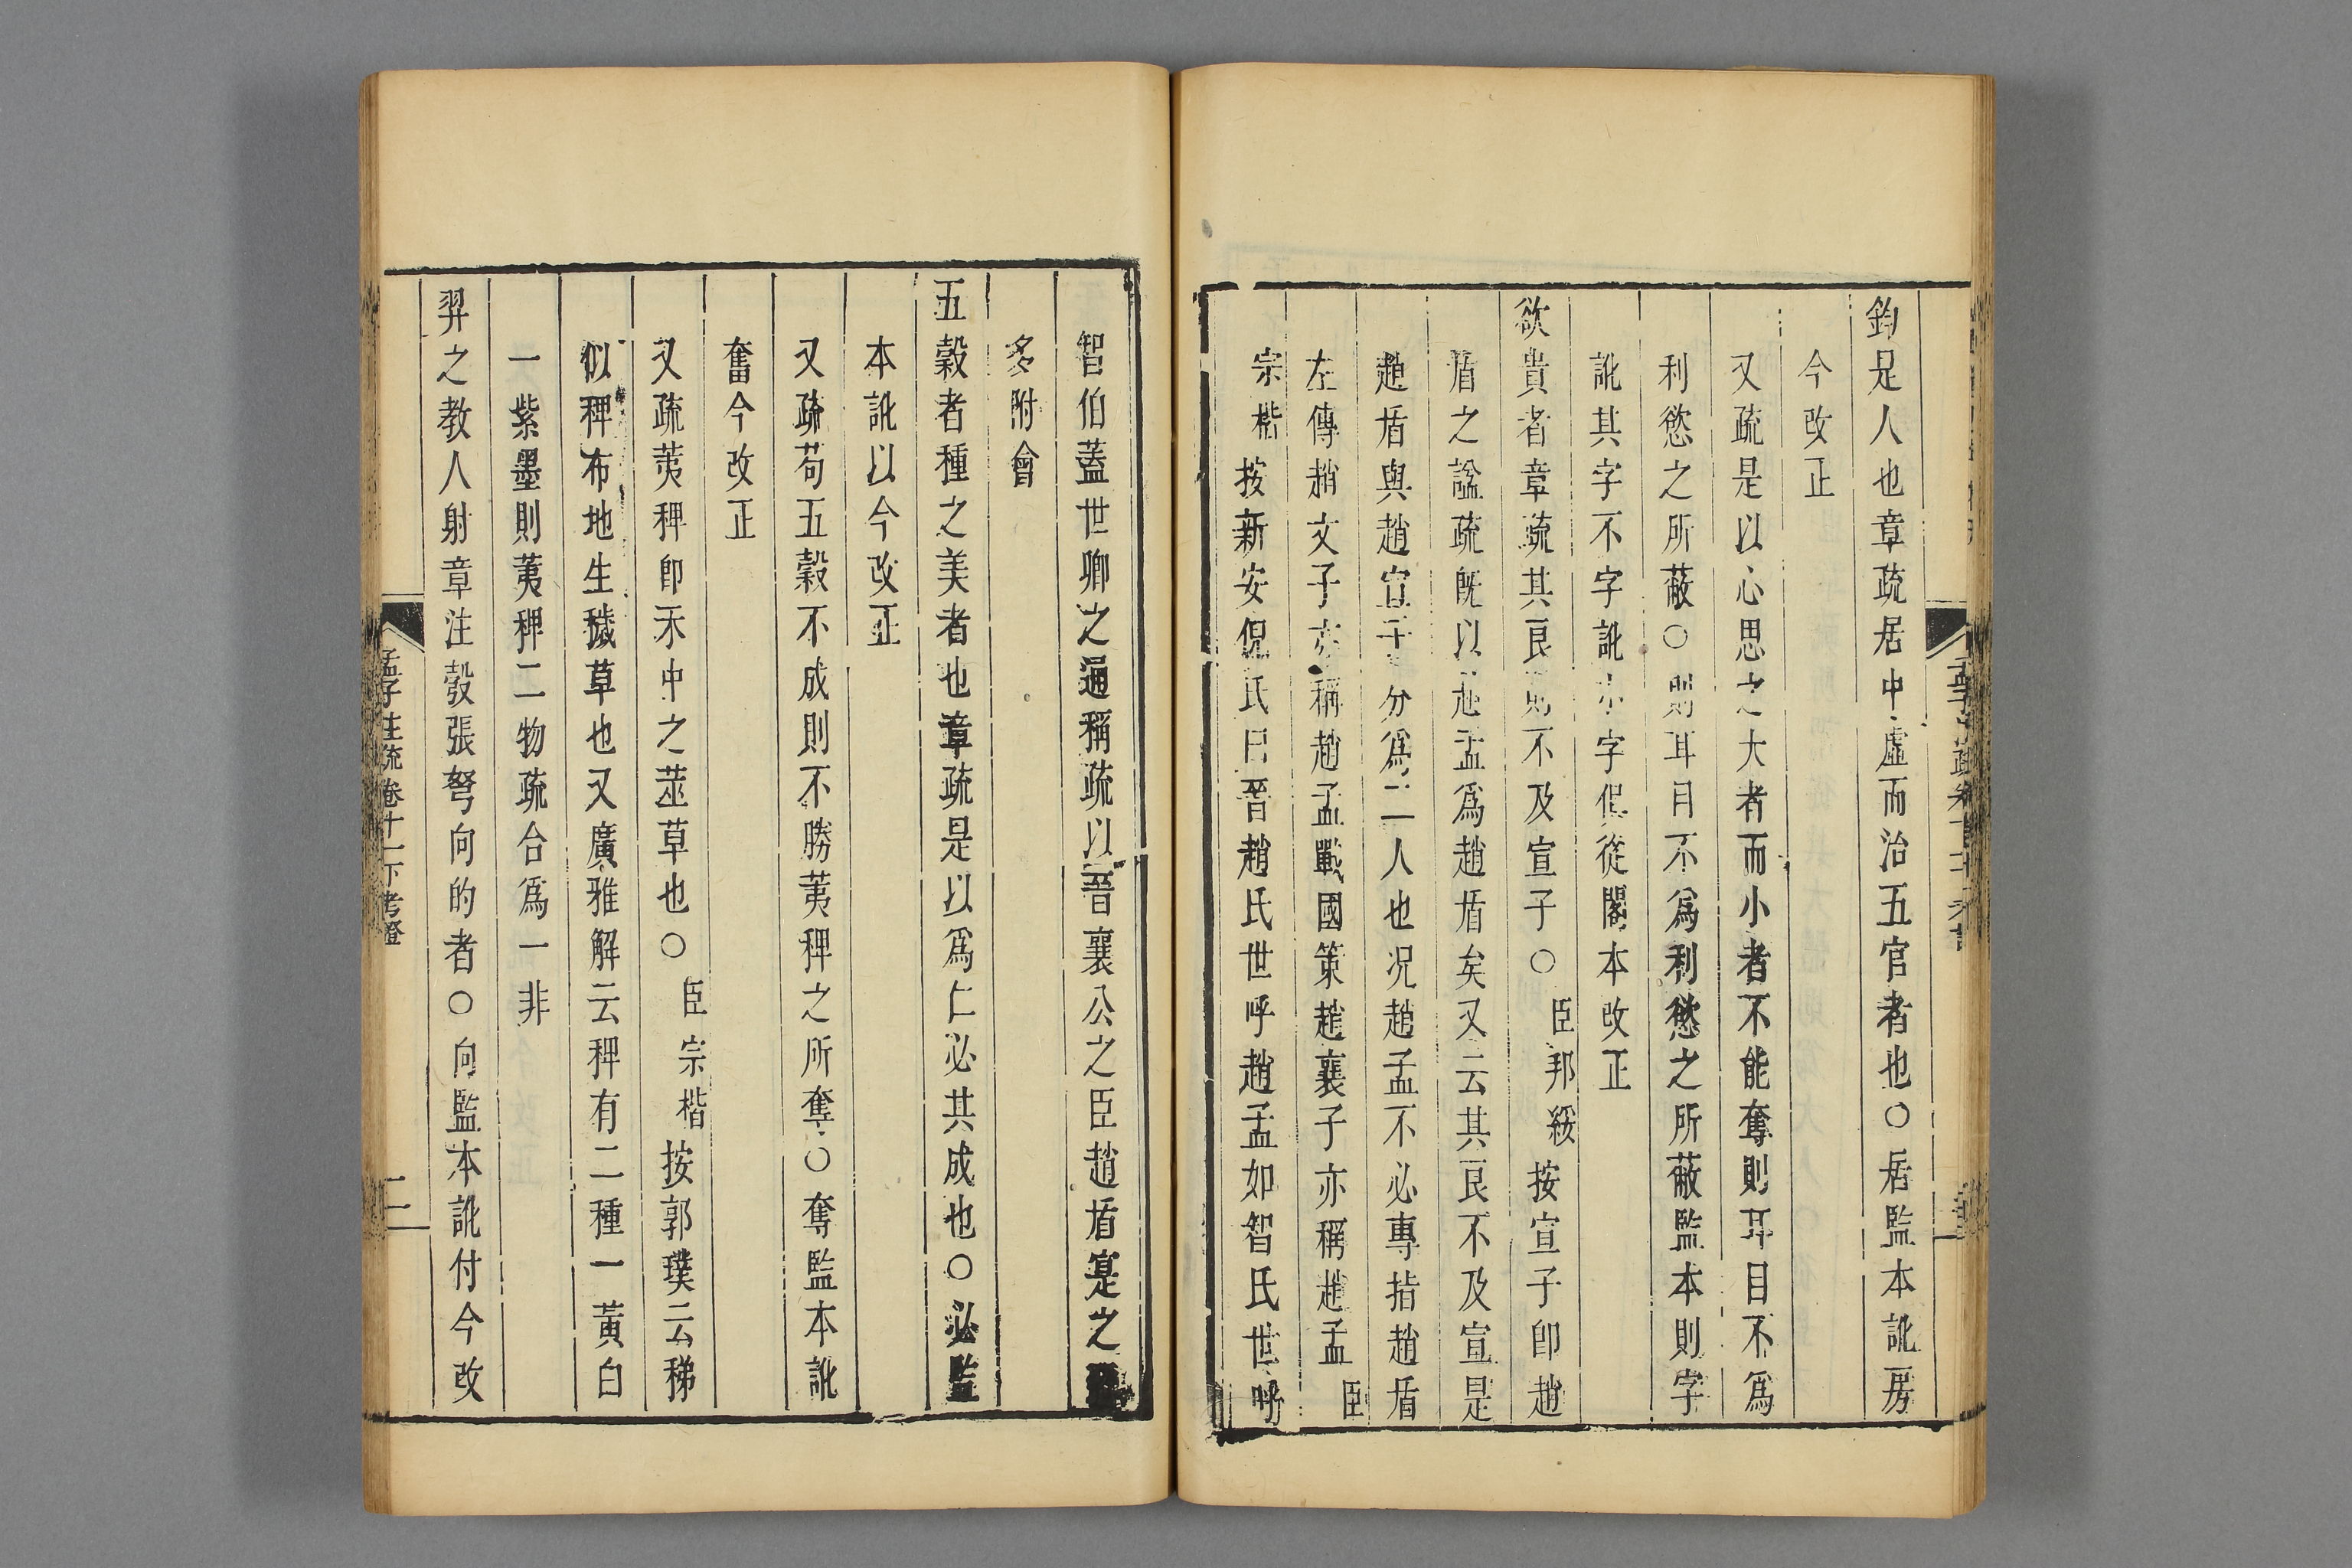 鈞是人也章疏居中虛而治五官者也○居監本訛房
今改正
又疏是以心思之大者而小者不能奪則耳目不為
利慾之所蔽○則耳目不為利慾之所蔽監本則字
訛其字不字訛小字俱從閣本改正
欲貴者章疏其良則不及宣子○臣邦綏按宣子卽趙
盾之諡疏旣以趙孟爲趙盾矣又云其良不及宣是
趙盾與趙宣子分爲二人也况趙孟不必專指趙盾
左傳趙文子亦稱趙孟戰國策趙襄子亦稱趙孟臣
宗楷按新安倪氏曰晉趙氏世呼趙孟如智氏世呼
智伯蓋世卿之通稱疏以晉襄公之臣趙盾寔之
多附會
五穀者種之美者也章疏是以爲仁必其成也○必監
本訛以今改正
又疏苟五穀不成則不勝荑稗之所奪○奪監本訛
奮今改正
又疏荑稗卽禾中之莁草也○臣宗楷按郭璞云稊
似稗布地生穢草也又廣雅解云稗有二種一黃白
一紫墨則荑稗二物疏合爲一非
羿之教人射章注彀張弩向的者○向監本訛付今改
孟子注疏卷十一下考證
二